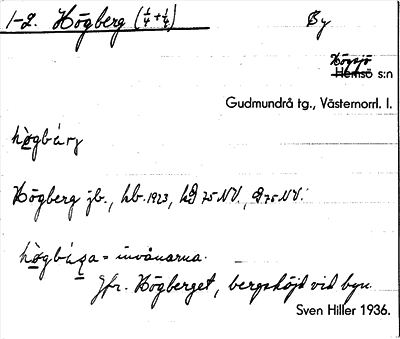 1-2. Högberg (1/4+1/4) By
Högsjö
Hemsö s:n
Gudmundrå tg., Västernorrl. l.
hògbárj
Högberg jb., hb. 1923, hD 75 NV., D 75 NV.
hògbáṛa = invånarna.
Jfr. Högberget, bergshöjd vid byn.
Sven Hiller 1936.